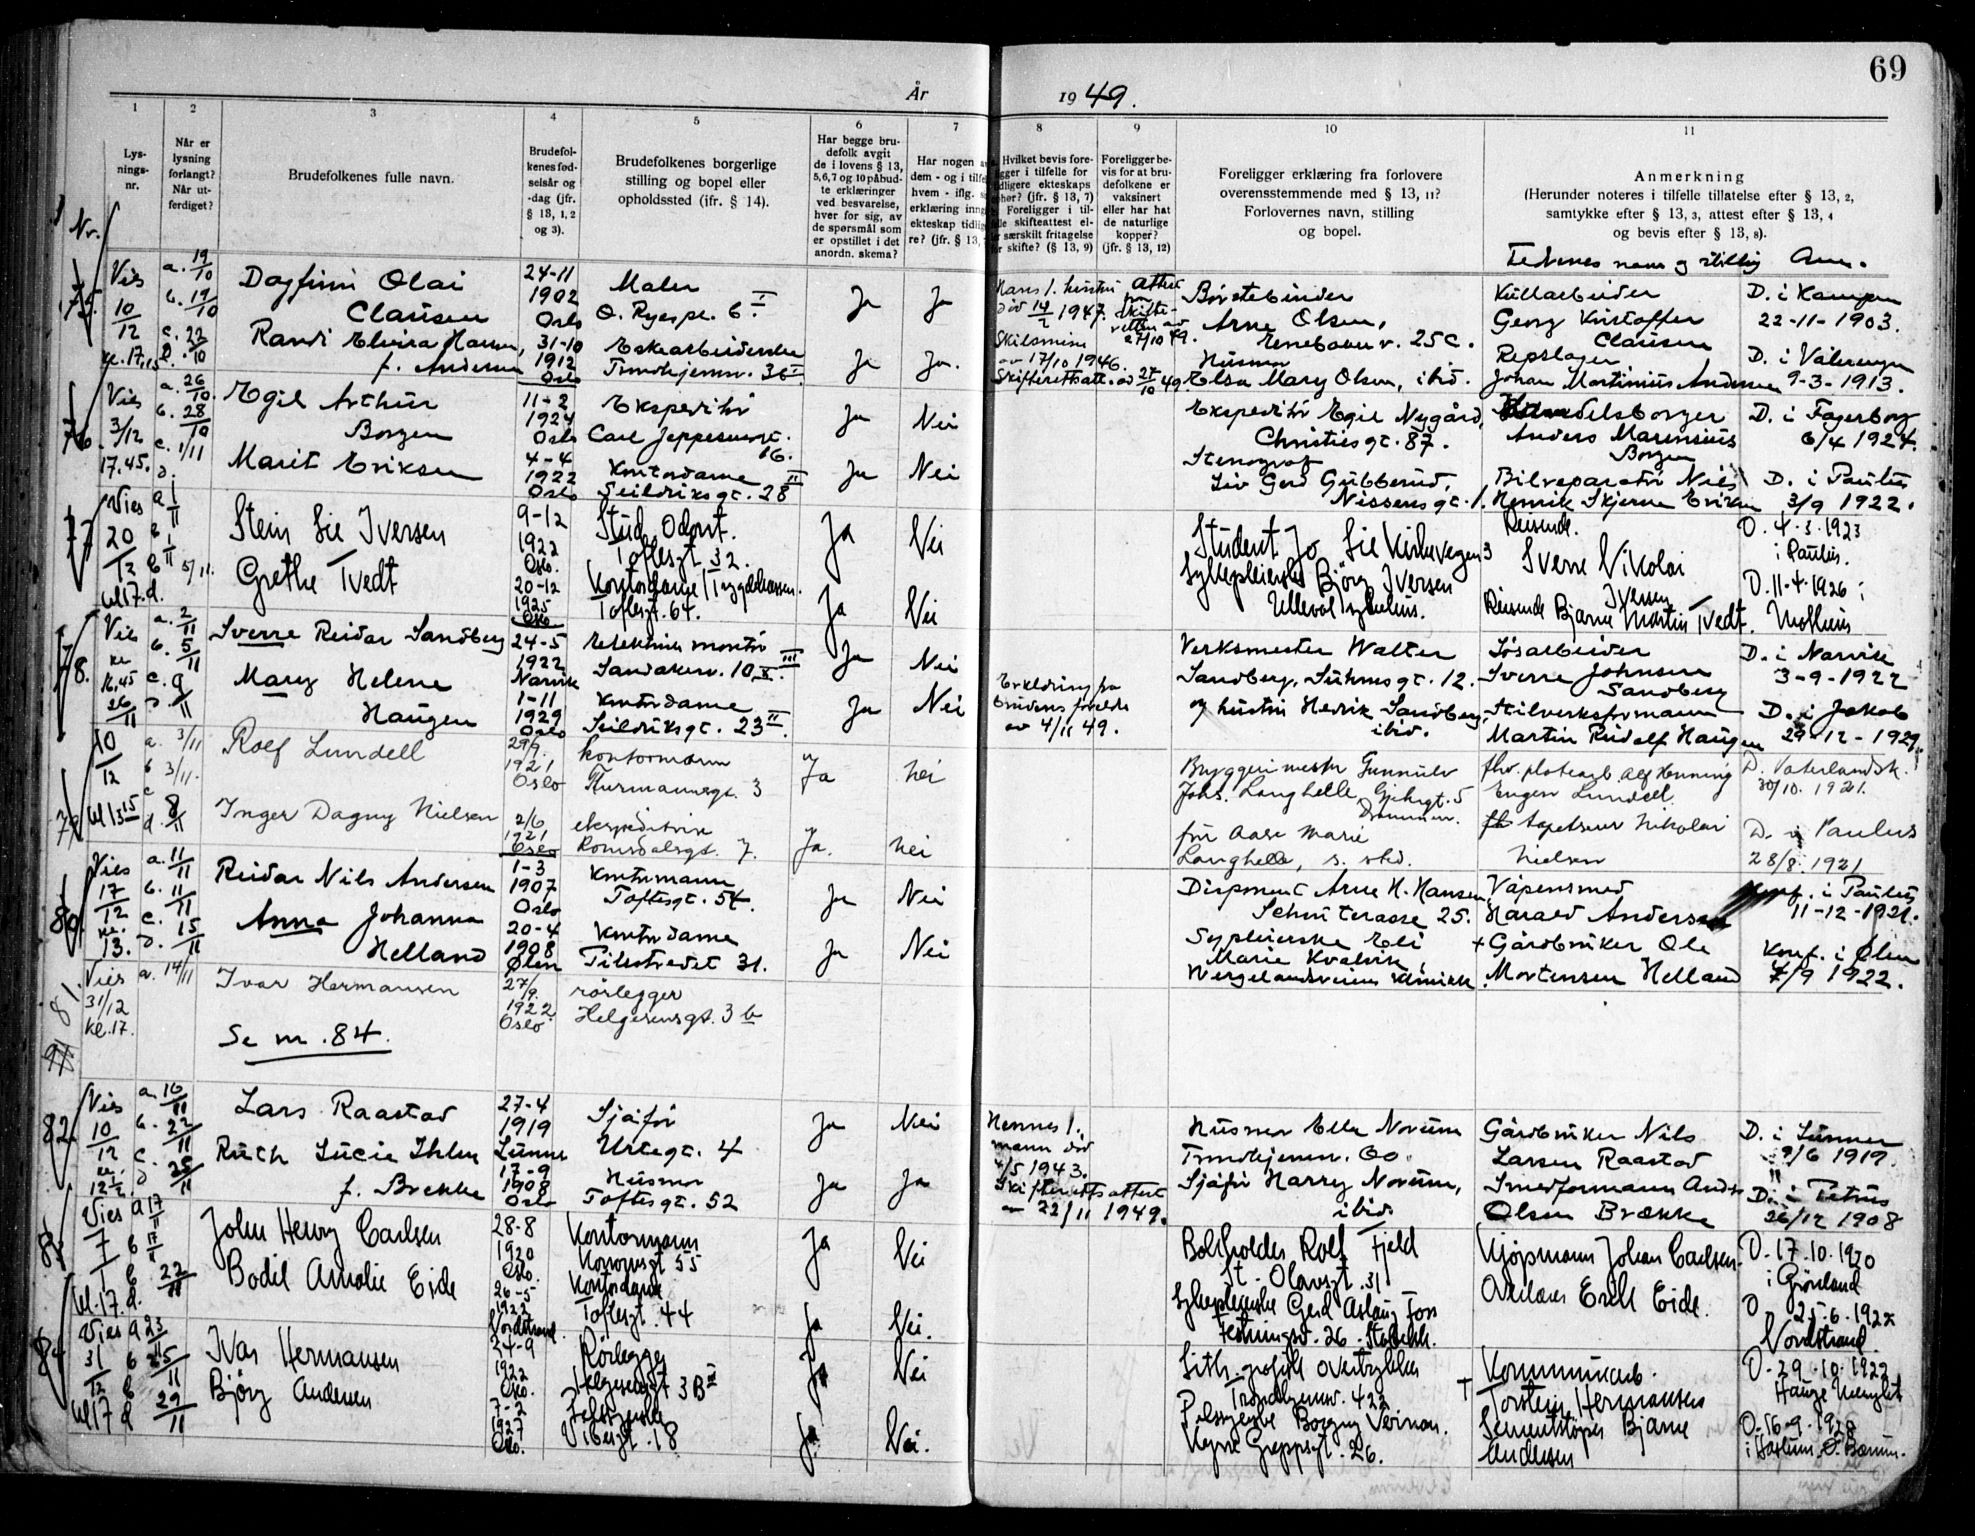 69
År
1949.
1
2
3
4
5
6
7
8
9
10
11
Lys-
nings-
nr.
Når er
lysning
forlangt?
Når ut-
ferdiget?
Brudefolkenes fulle navn.
Brudefol-
kenes fød-
selsår og
-dag (jfr.
§ 13, 1, 2
og 3).
Brudefolkenes borgerlige
stilling og bopel eller
opholdssted (jfr. § 14).
Har begge bru-
defolk avgit
de i lovens § 13,
5,6,7 og 10 påbud-
te erklæringer
ved besvarelse,
hver for sig, av
de spørsmål som
er opstillet i det
anordn. skema?
Har nogen
dem - og i tilfe
hvem - iflg.
erklæring inng
ekteskap tidlig
re? (jfr. § 13,
Hvilket bevis fore-
ligger i tilfelle for
tidligere ekteskaps
ophør? (jfr. § 13, 7)
Foreligger i til-
felle skifteattest el-
ler særskilt fritagelse
for skifte? (§ 13, 9)
Foreligger be-
vis for at bru-
defolkene er
vaksinert
eller har hat
de naturlige
kopper?
(jfr. § 13, 12)
Foreligger erklæring fra forlovere
overensstemmende med § 13, 11?
Forlovernes navn, stilling
og bopel.
Anmerkning
(Herunder noteres i tilfelle tillatelse efter § 13, 2,
samtykke efter § 13, 3, attest efter § 13, 4
og bevis efter § 13, 8).
Fedrenes navn og stilling Anm.
Nr.
75.
Vies
10/12
kl. 17,15
a. 19/10
b. 19/10
c. 22/10
Dagfinn Olai
Clausen
24-11
1902
Oslo
Maler
O. Ryespl. 6 I.
Ja
Ja
Hans 1. hustru
død 14/2 1947.
27/10 49.
Børstebinder
Arne Olsen,
Enebakkv. 25 C.
Kullarbeider
Georg Kristoffer
Clausen
D. i Kampen
22-11-1903.
Randi Elvira Hansen,
f. Andersen
31-10
1912
Oslo
Eskearbeiderske
Trondhjemsv. 36 I.
Ja
Ja.
Skilsmisse
av 17/10 1946.
Skifterettsatt. av 27/10 49.
Husmor
Elsa Mary Olsen, ibid.
Repslager
Johan Martinius Andersen
D. i Vålerengen
9-3-1913.
76.
Vies
3/12
17.45.
a. 26/10.
b. 28/10
c. 1/11
d.
Egil Arthur
Borgen
11-2
1924
Oslo
Ekspeditør
Carl Jeppesensgt.
16.
Ja
Nei
Ekspeditør Egil Nygård,
Christiesgt. 87.
Handelsborger
Anders Marensius
Borgen
D. i Fagerborg
6/4 1924.
Marit Eriksen
4-4
1922
Oslo
Kontordame
Seilduksgt. 28 II
Ja
Nei
Stenograf
Liv Gerd Gubberud,
Nissensgt. 1.
Bilreparatør Nils
Henrik Skjerne Eriksen
D. i Paulus
3/9 1922.
77
Vies
20/12
kl 17.
a 1/11
b 1/11
c 5/11.
d.
Stein Lie Iversen
9-12
1922
Oslo.
Stud. Odont.
Toftesgt. 32.
Ja
Nei
Student Jo Lie Kirkevegen 3
Reisende.
Sverre Nikolai
Iversen
D. 4.3.1923
i Paulus.
Grethe Tvedt
20-12
1925
Oslo
Kontordame/Trygdekassen.
Toftesgt. 64.
Ja
Nei
Sykepleierske Björg Iversen
Ullevål sykehus.
Reisende Bjarne Martin Tvedt.
D. 11-4-1926 i
78.
Vies
kl
16,45
26/11
a. 2/11
b. 5/11
c. 9/11
d.
Sverre Reidar Sandberg
24-5
1922
Narvik
elektriker montør
Sandakerv. 10 III.
Ja
Nei
Verksmester Walter
Sandberg, Suhmsgt. 12.
Løsarbeider
Sverre Johnsen
Sandberg
D. i Narvik
3-9-1922
Mary Helene
Haugen
1-11
1929
Oslo
Kontordame
Seilduksgt. 23 II.
Ja
Nei
Erklæring fra
brudens foreldre
av 4/11 49.
og hustru Hedvik Sandberg,
ibid.
Martin Rudolf Haugen
D. i Jakob
29-12-1929.
79
10/12
kl 13 15
a. 3/11
b 3/11.
c
d. 8/11
Rolf Lundell
29/9.
1921
Oslo
kontormann
Thurmannsgt. 3
Ja
nei
Bryggerimester Gunnulv
Johs. Langhelle, Gjetergt. 5
Drammen.
fhv. platearb. Alf Henning
Eugen Lundell.
D. Vaterlandsk.
30/10. 1921.
Inger Dagny Nielsen
2/6
1921
Oslo
ekspeditrise
Romsdalsgt. 7.
Ja.
nei
fru Aase Marie
Langhelle, s. std.
tapetserer Nikolai
Nielsen
D. i Paulus
28/8. 1921
80.
Vies
17/12
kl.
13.
a. 11/11
b. 11/11
c. 15/11
d.
Reidar Nils Andersen
1-3
1907
Oslo
Kontormann
Toftesgt. 54.
Ja
Nei
Disponent Arne H. Hansen,
Schouterasse 25.
Våpensmed
Harald Andersen
Konf. i Paulus
11-12-1921.
Anna Johanna
Helland
20-4
1908
Ølen
Kontordame
Pilestredet 31.
Ja
Nei
Sypleierske Eli
Marie Kvalvik,
Wergelandsveien Klinikk.
+ Gårdbruker Ole
Mortensen Helland
Konf. i Ølen
7/9 1922.
81.
Vies
31/12
kl. 17.
a. 14/11
Ivar Hermansen
27/9.
1922
Oslo
rørlegger
Helgesensgt. 3 b
Se nr. 84.
82
Vies
10/12
kl.
12½
a. 16/11
b. 22/11
c. 25/11
d
Lars Raastad
27-4
1919
Lunner
Sjåfør
Urtegt. 4
Ja
Nei
Husmor Ella Norum
Trondhjemsv. 60.
Gårdbruker Nils
Larsen Raastad
D. i Lunner
9/6 1919.
Ruth Lucie Ihlen
f. Brekke
17-9
1908
Oslo
Husmor
Toftesgt. 52
Ja
Ja
Hennes 1.
mann død
1/5 1943.
Skifterettsattest
av 22/11 1949.
Sjåfør Harry Norum,
ibid.
Smedformann Anders
Olsen Brække
D. i Petrus
26/12 1908
Vies
7/1
kl. 17.
a 17/11
b 17/11
c 22/11
d.
John Henry Carlsen
28-8
1920
Oslo.
Kontormann
Korsvegt 55
Ja
Nei
Bokholder Rolf Fjeld
St. Olavsgt. 31
Kjøpmann Johan Carlsen.
D. 17.10.1920
i Grönland
Bodil Amalie Eide
26-5
1922
Nordstrand.
Kontordame
Toftesgt. 44
Ja
Nei.
Sykepleierske Gerd Aslaug Foss
Festningsv. 26. Stabekk.
Erik Eide.
D. 25.6.1922
Nordstrand
84
Vies
31/12
kl 17
a 23/11
b 25/11
c 29/11
d
Ivar Hermansen
24-9
1922
Oslo.
Rörlegger
Helgesensgt 3B III
Ja
Nei
Litografisk overtrykker
Trondhjemsv. 42 II
† Kommunearb.
Torstein Hermansen
D. 29.10.1922
Björg Andersen
7-2
1927
Oslo.
Pelssyerske
Vibesgt. 18
Ja.
Nei.
Pelssyerske Borgny Vernon.
Greppsgt. 26.
Sementstöper Bjarne
Andersen
D. 16.9.1928
i Haslum, Ö. Bærum.